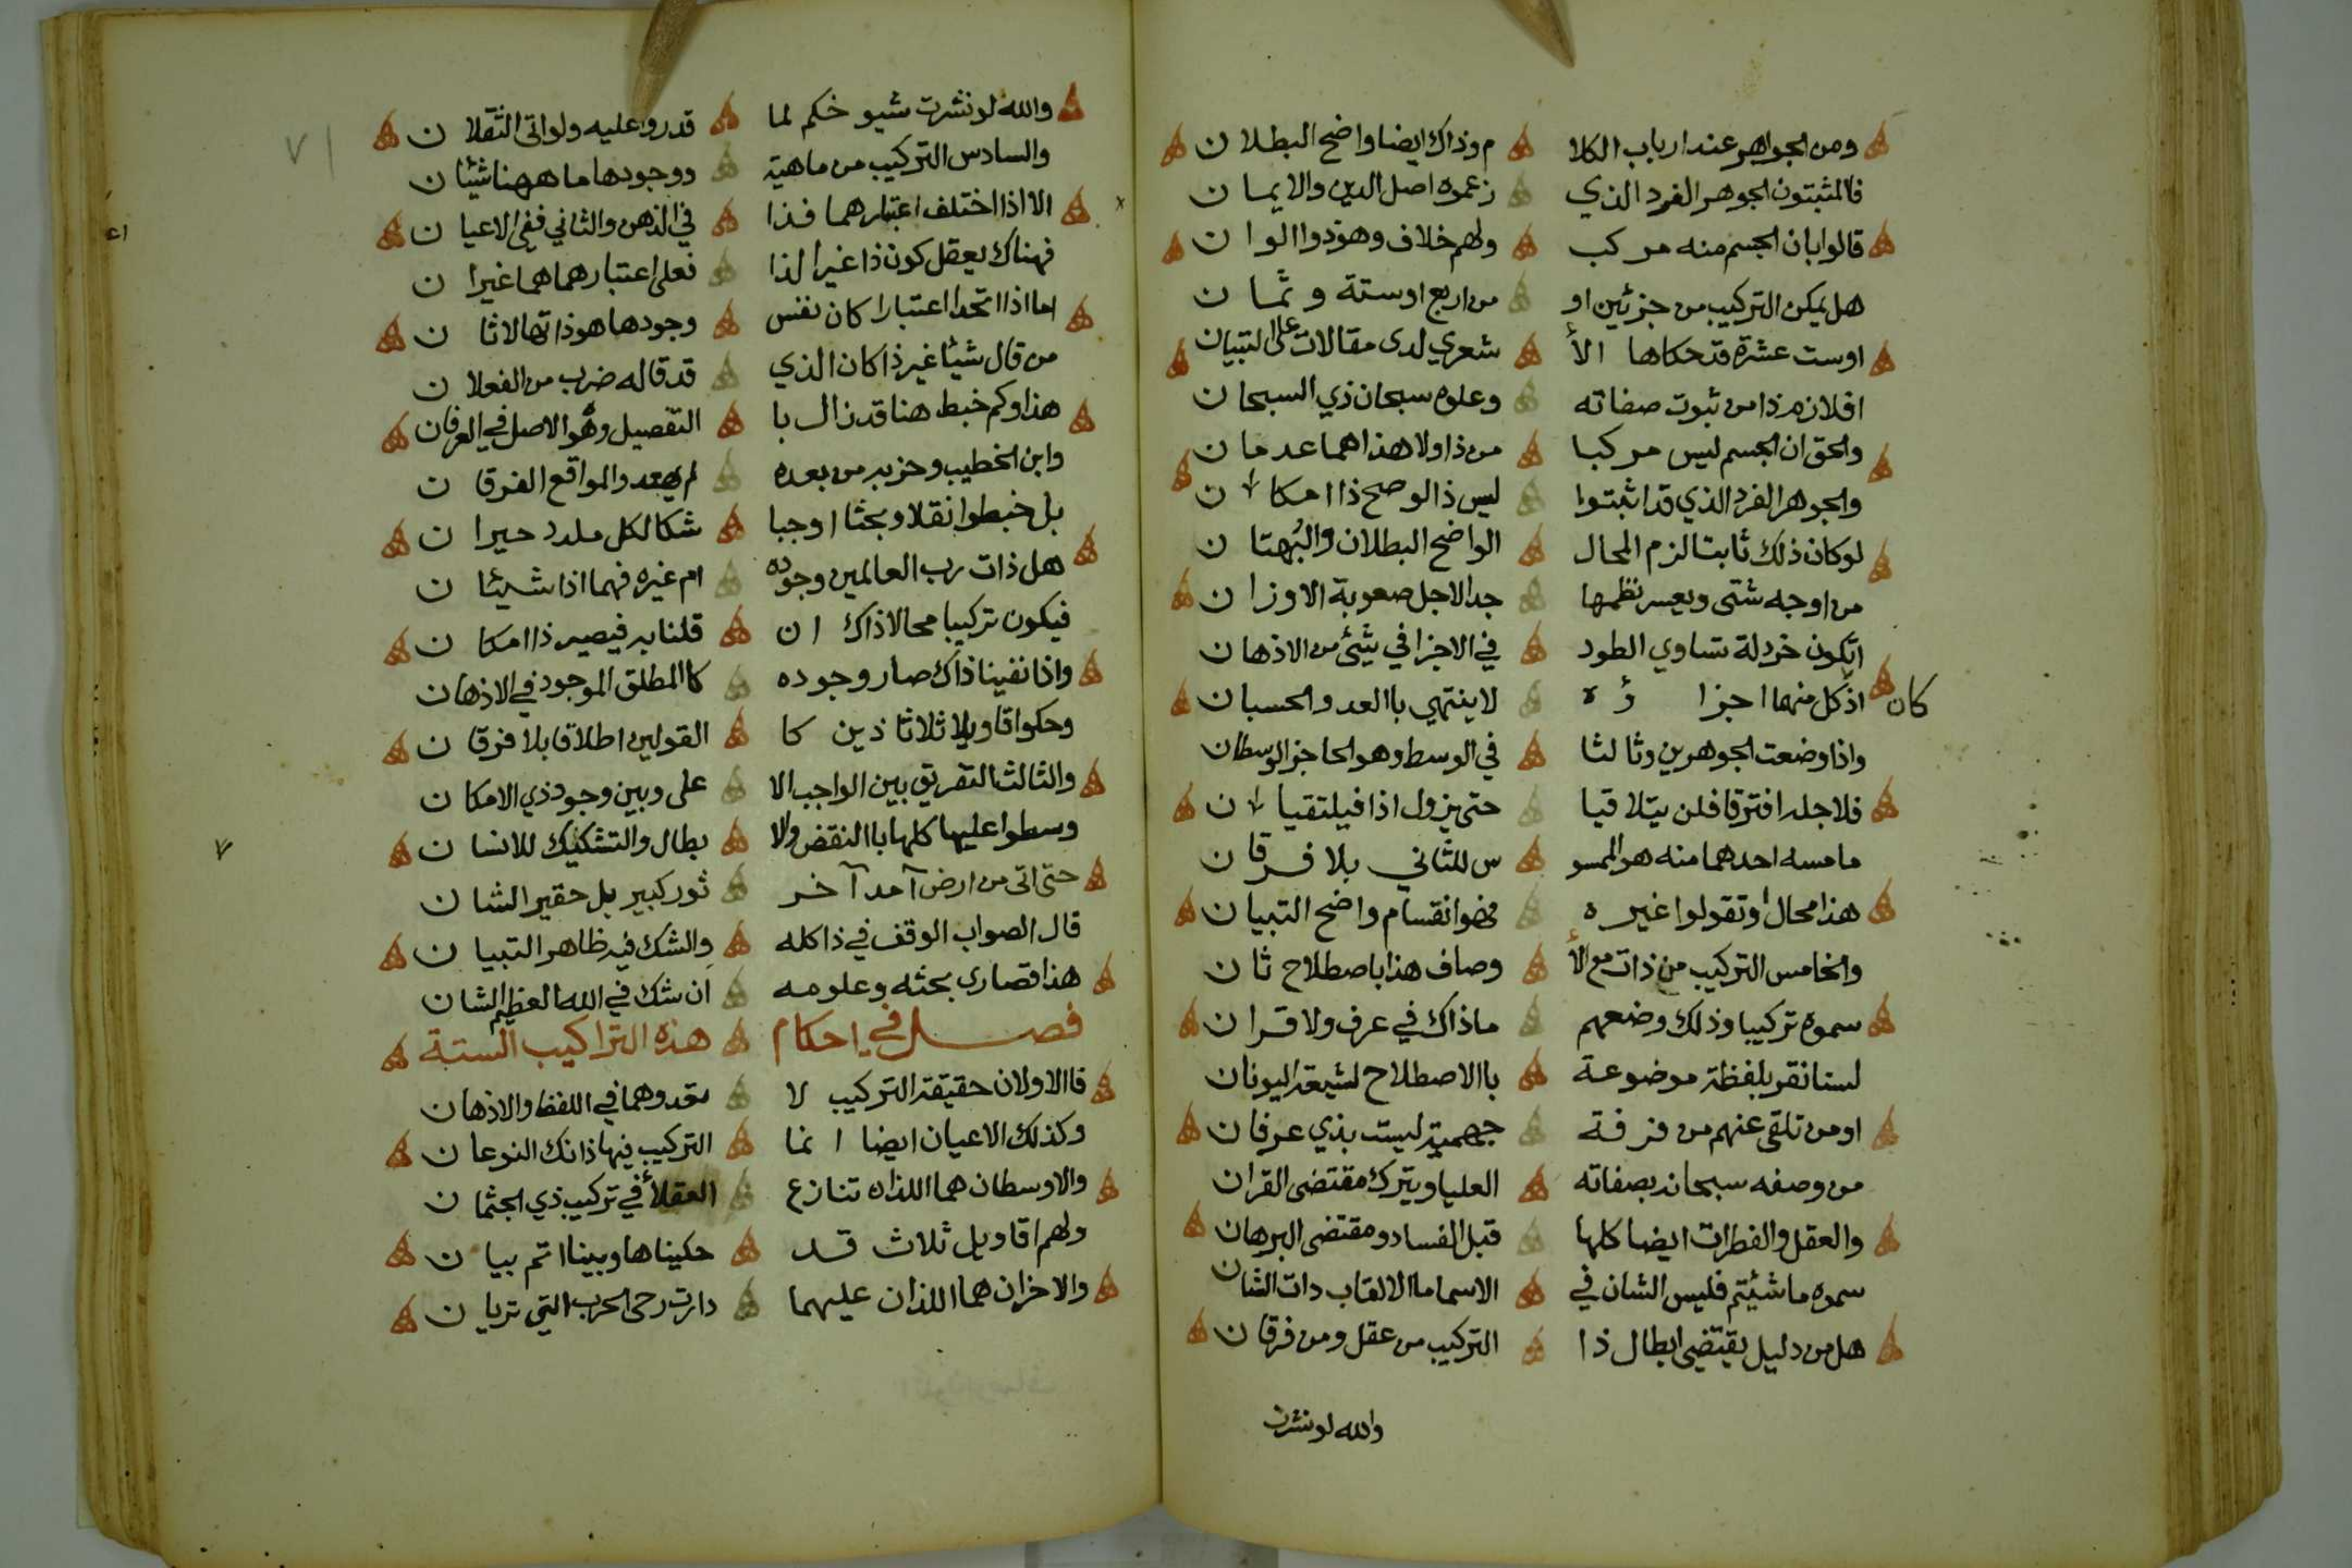 ومن الجواهر عند ارباب الكلا م وذاك ايضا واضح البطلان
فالمثبتون الجوهر الفرد الذي زعموه اصل الدين والايمان
قالوا بان الجسم منه مركب ولهم خلاف وهو ذوا الوان
هل يمكن التركيب من جزئين او من اربع اوستة وثمان
اوست عشرة قد حكاها الأ شعري لدى مقالات على التبيان
افلازم ذا من ثبوت صفاته وعلوه سبحان ذي السبحان
والحق ان الجسم ليس مركبا من ذا ولا هذا هما عدمان
والجوهر الفرد الذي قد اثبتوا ليس ذا لو صح ذا امكان
لو كان ذلك ثابتا لزم المحال الواضح البطلان والبُهتان
من اوجه شتى ويعسر نظمها جدا لاجل صعوبة الاوزان
اتكون خردلة تساوي الطود في الاجزا في شيئ من الاذهان
كان
اذ كل منهما اجزا ؤه لا ينتهي باالعد والحسبان
واذا وضعت الجوهرين وثالثا في الوسط وهو الحاجز الوسطان
فلاجله افترقا فلن يتلاقيا حتى يزول اذا فيلتقيان
ما مسه احدهما منه هو الممسو س للثاني بلا فرقان
هذا محال او تقولوا غيره فهو انقسام واضح التبيان
والخامس التركيب من ذات مع الأ وصاف هذا باصطلاح ثان
سموه تركيبا وذلك وضعهم ماذاك في عرف ولا قران
لسنا نقر بلفظة موضوعة باالاصطلاح لشيعة اليونان
اومن تلقى عنهم من فرقة جهمية ليست بذي عرفان
من وصفه سبحانه بصفاته العليا ويترك مقتضى القران
والعقل والفطرات ايضا كلها قبل الفساد ومقتضى البرهان
سموه ما شئتم فليس الشان في الاسما ما الالقاب ذات الشان
هل من دليل يقتضي ابطال ذا التركيب من عقل ومن فرقان
والله لو نشرت
٧١
والله لو نشرت شيوخكم لما قدروا عليه ولو اتى الثقلان
والسادس التركيب من ماهية ووجودها ما ههنا شيئان
الا اذا اختلف اعتبارهما فذا في الذهن والثاني ففي الاعيان
فهناك يعقل كون ذا غيرا لذا فعلى اعتبارهما هما غيران
اما اذا اتحدا اعتبارا كان نفس وجودها هو ذاتها لاثان
من قال شيئا غير ذا كان الذي قد قاله ضرب من الفعلان
هذا وكم خبط هنا قد زال با التفصيل وهو الاصل في العرفان
وابن الخطيب وحزبه من بعده لم يهتدوا لمواقع الفرقان
بل خبطوا نقلا وبحثا اوجبا شكا لكل ملدد حيران
هل ذات رب العالمين وجوده ام غيره فهما اذا شيئان
فيكون تركيبا محالا ذاك ان قلنا به فيصير ذا امكان
واذا نفينا ذاك صار وجوده كاالمطلق الموجود في الاذهان
وحكوا اقاويلا ثلاثا ذين كا القولين اطلاقا بلا فرقان
والثالث التفريق بين الواجب الا على وبين وجود ذي الامكان
وسطوا عليها كلها باالنقض والا بطال والتشكيك للانسان
حتى اتى من ارض آمد آخر ثور كبير بل حقير الشان
قال الصواب الوقف في ذا كله والشك فيه ظاهر التبيان
هذا قصارى بحثه وعلومه ان شك في الله العظيم الشان
فصل في احكام هذه التراكيب الستة
فاالاولان حقيقة التركيب لا تعدوهما في اللفظ والاذهان
وكذلك الاعيان ايضا انما التركيب فيها ذانك النوعان
والاوسطان هما اللذان تنازع العقلأ في تركيب ذي الجثمان
ولهم اقاويل ثلاث قد حكيناها وبينا اتم بيان
والاخران هما اللذان عليهما دارت رحى الحرب التي تريان